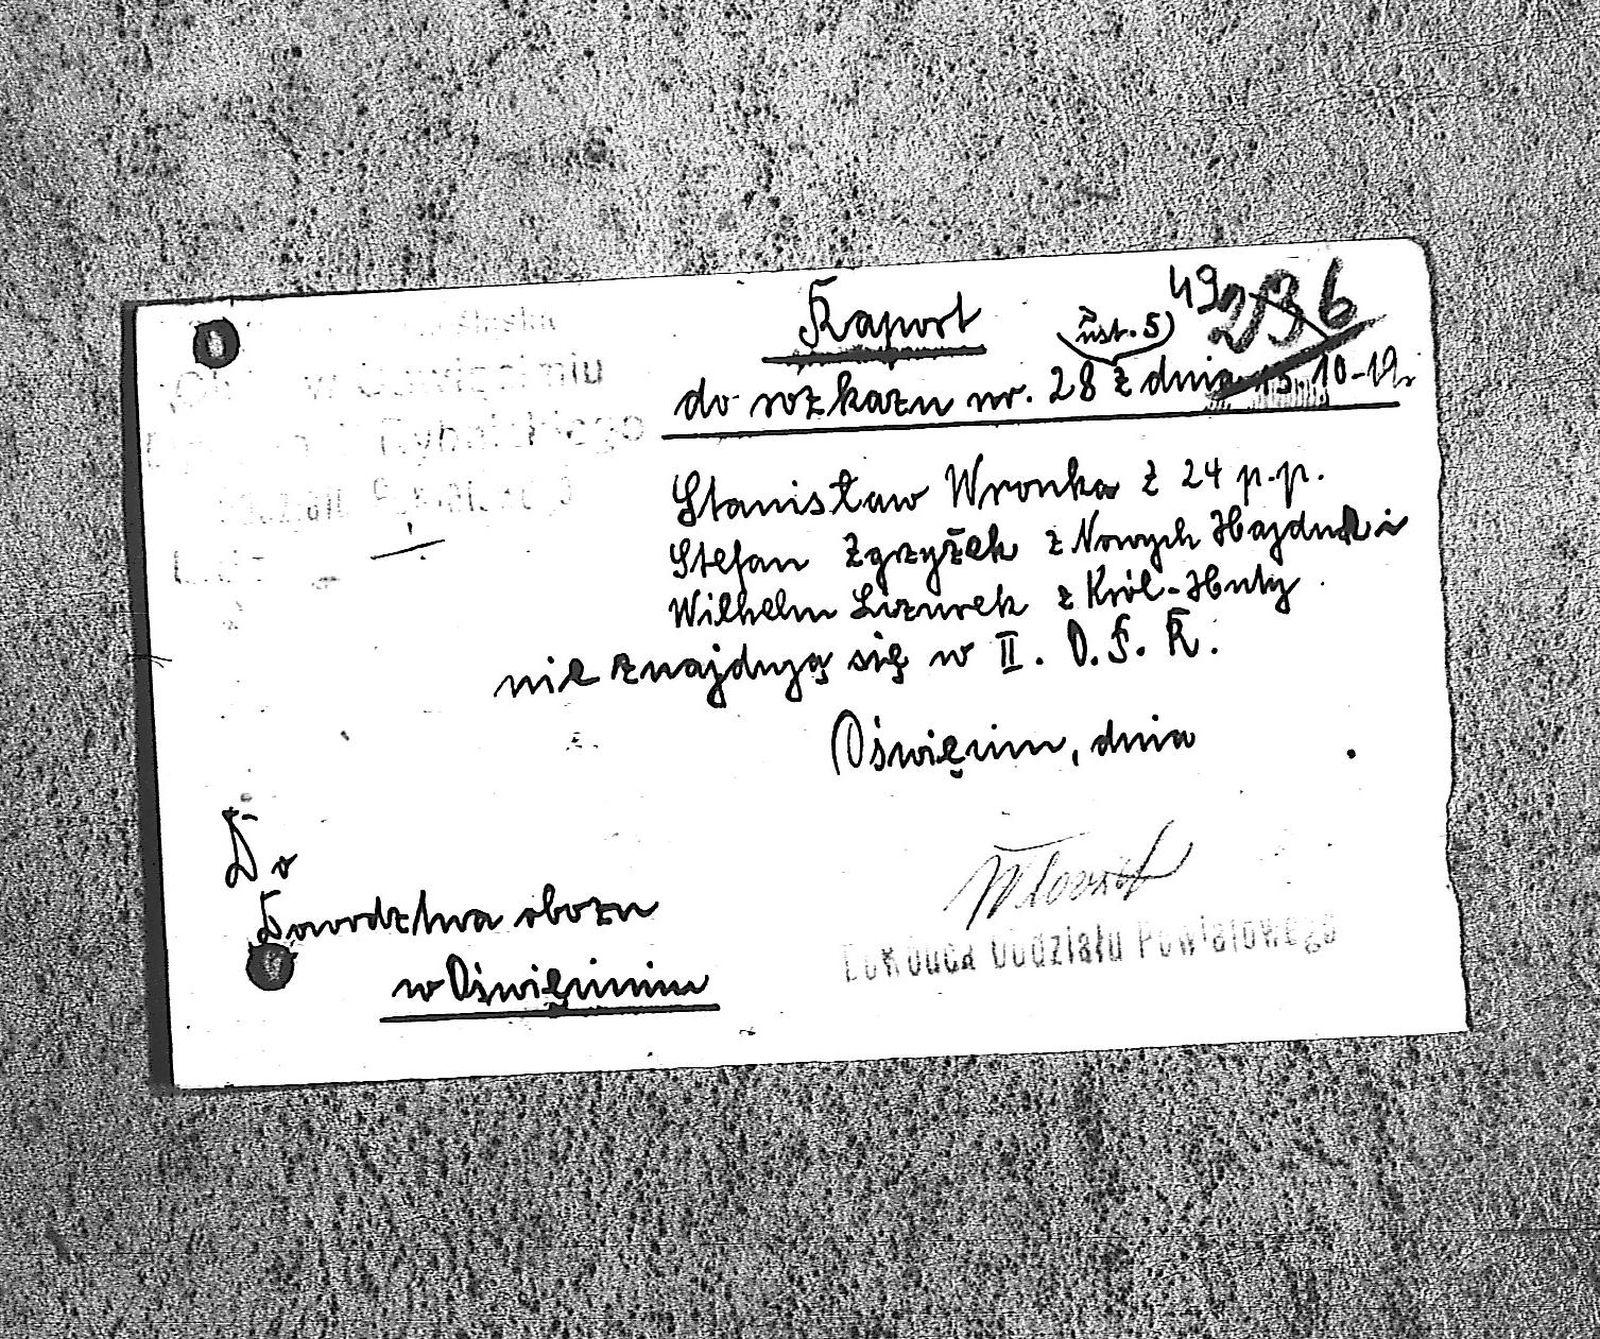 49
236
Raport
(ust. 5)
do rozkazu nr. 28 z dnia 10-19.
w Oświęcimiu
Rybnickiego
Stanisław Wronka z 24 p.p.
Stefan Zgrzyżek z Nowych Hajduk i
Wilhelm Lizurek z Król-Huty
nie znajdują się w II. O.P.R.
Oświęcim, dnia
Do
Dowództwa obozu
w Oświęcimiu
Dowódca Oddziału Powiatowego